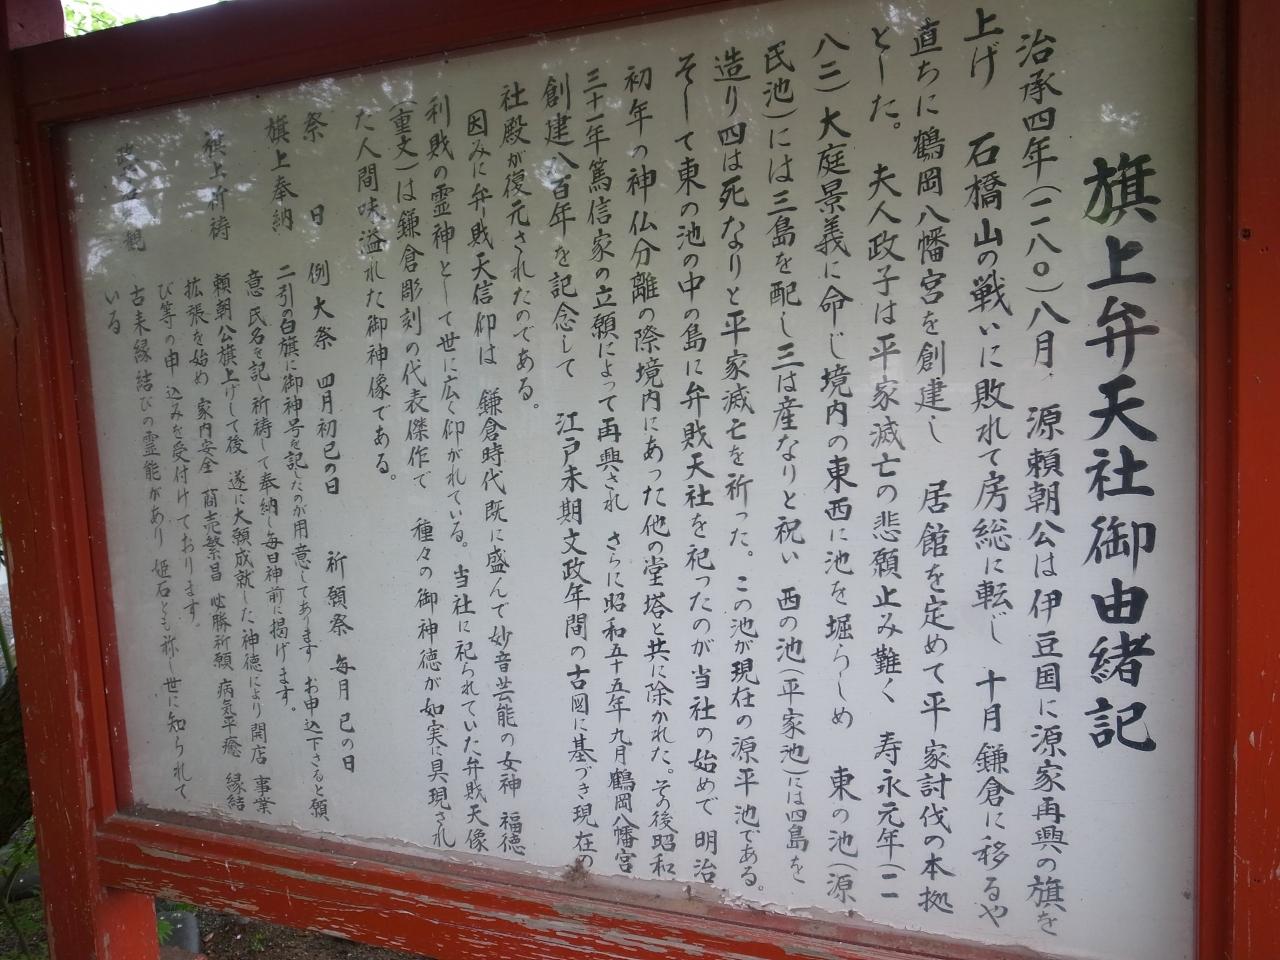 旗上弁天社御由緒記
治承四年(一一八〇)八月、源頼朝公は伊豆国に源家再興の旗を
上げ 石橋山の戦いに敗れて房総に転じ 十月鎌倉に移るや
直ちに鶴岡八幡宮を創建し 居館を定めて平家討伐の本拠
とした。 夫人政子は平家滅亡の悲願止み難く 寿永元年(一一
八二)大庭景義に命じ境内の東西に池を堀らしめ 東の池(源
氏池)には三島を配し三は産なりと祝い 西の池(平家池)には四島を
造り四は死なりと平家滅亡を祈った。この池が現在の源平池である。
そして東の池の中の島に弁戝天社を祀ったのが当社の始めで 明治
初年の神仏分離の際境内にあった他の堂塔と共に除かれた。その後昭和
三十一年篤信家の立願によって再興され さらに昭和五十五年九月鶴岡八幡宮
創建八百年を記念して 江戸末期文政年間の古図に基づき現在の
社殿が復元されたのである。
因みに弁戝天信仰は 鎌倉時代既に盛んで妙音芸能の女神 福徳
利戝の霊神として世に広く仰がれている。当社に祀られていた弁戝天像
(重文)は鎌倉彫刻の代表傑作で 種々の御神徳が如実に具現され
た人間味溢れた御神像である。
祭 日 例大祭 四月初巳の日 祈願祭 毎月巳の日
旗上奉納 二引の白旗に御神号を記したのが用意してあります お申込下さると願
意 氏名を記し祈祷して奉納し毎日神前に掲げます。
旗上祈祷 頼朝公旗上げして後 遂に大願成就した神徳により開店 事業
拡張を始め 家内安全 商売繁昌 必勝祈願 病気平癒 縁結
び等の申込みを受付けております。
古来縁結びの霊能があり 姫石とも称し世に知られて
いる